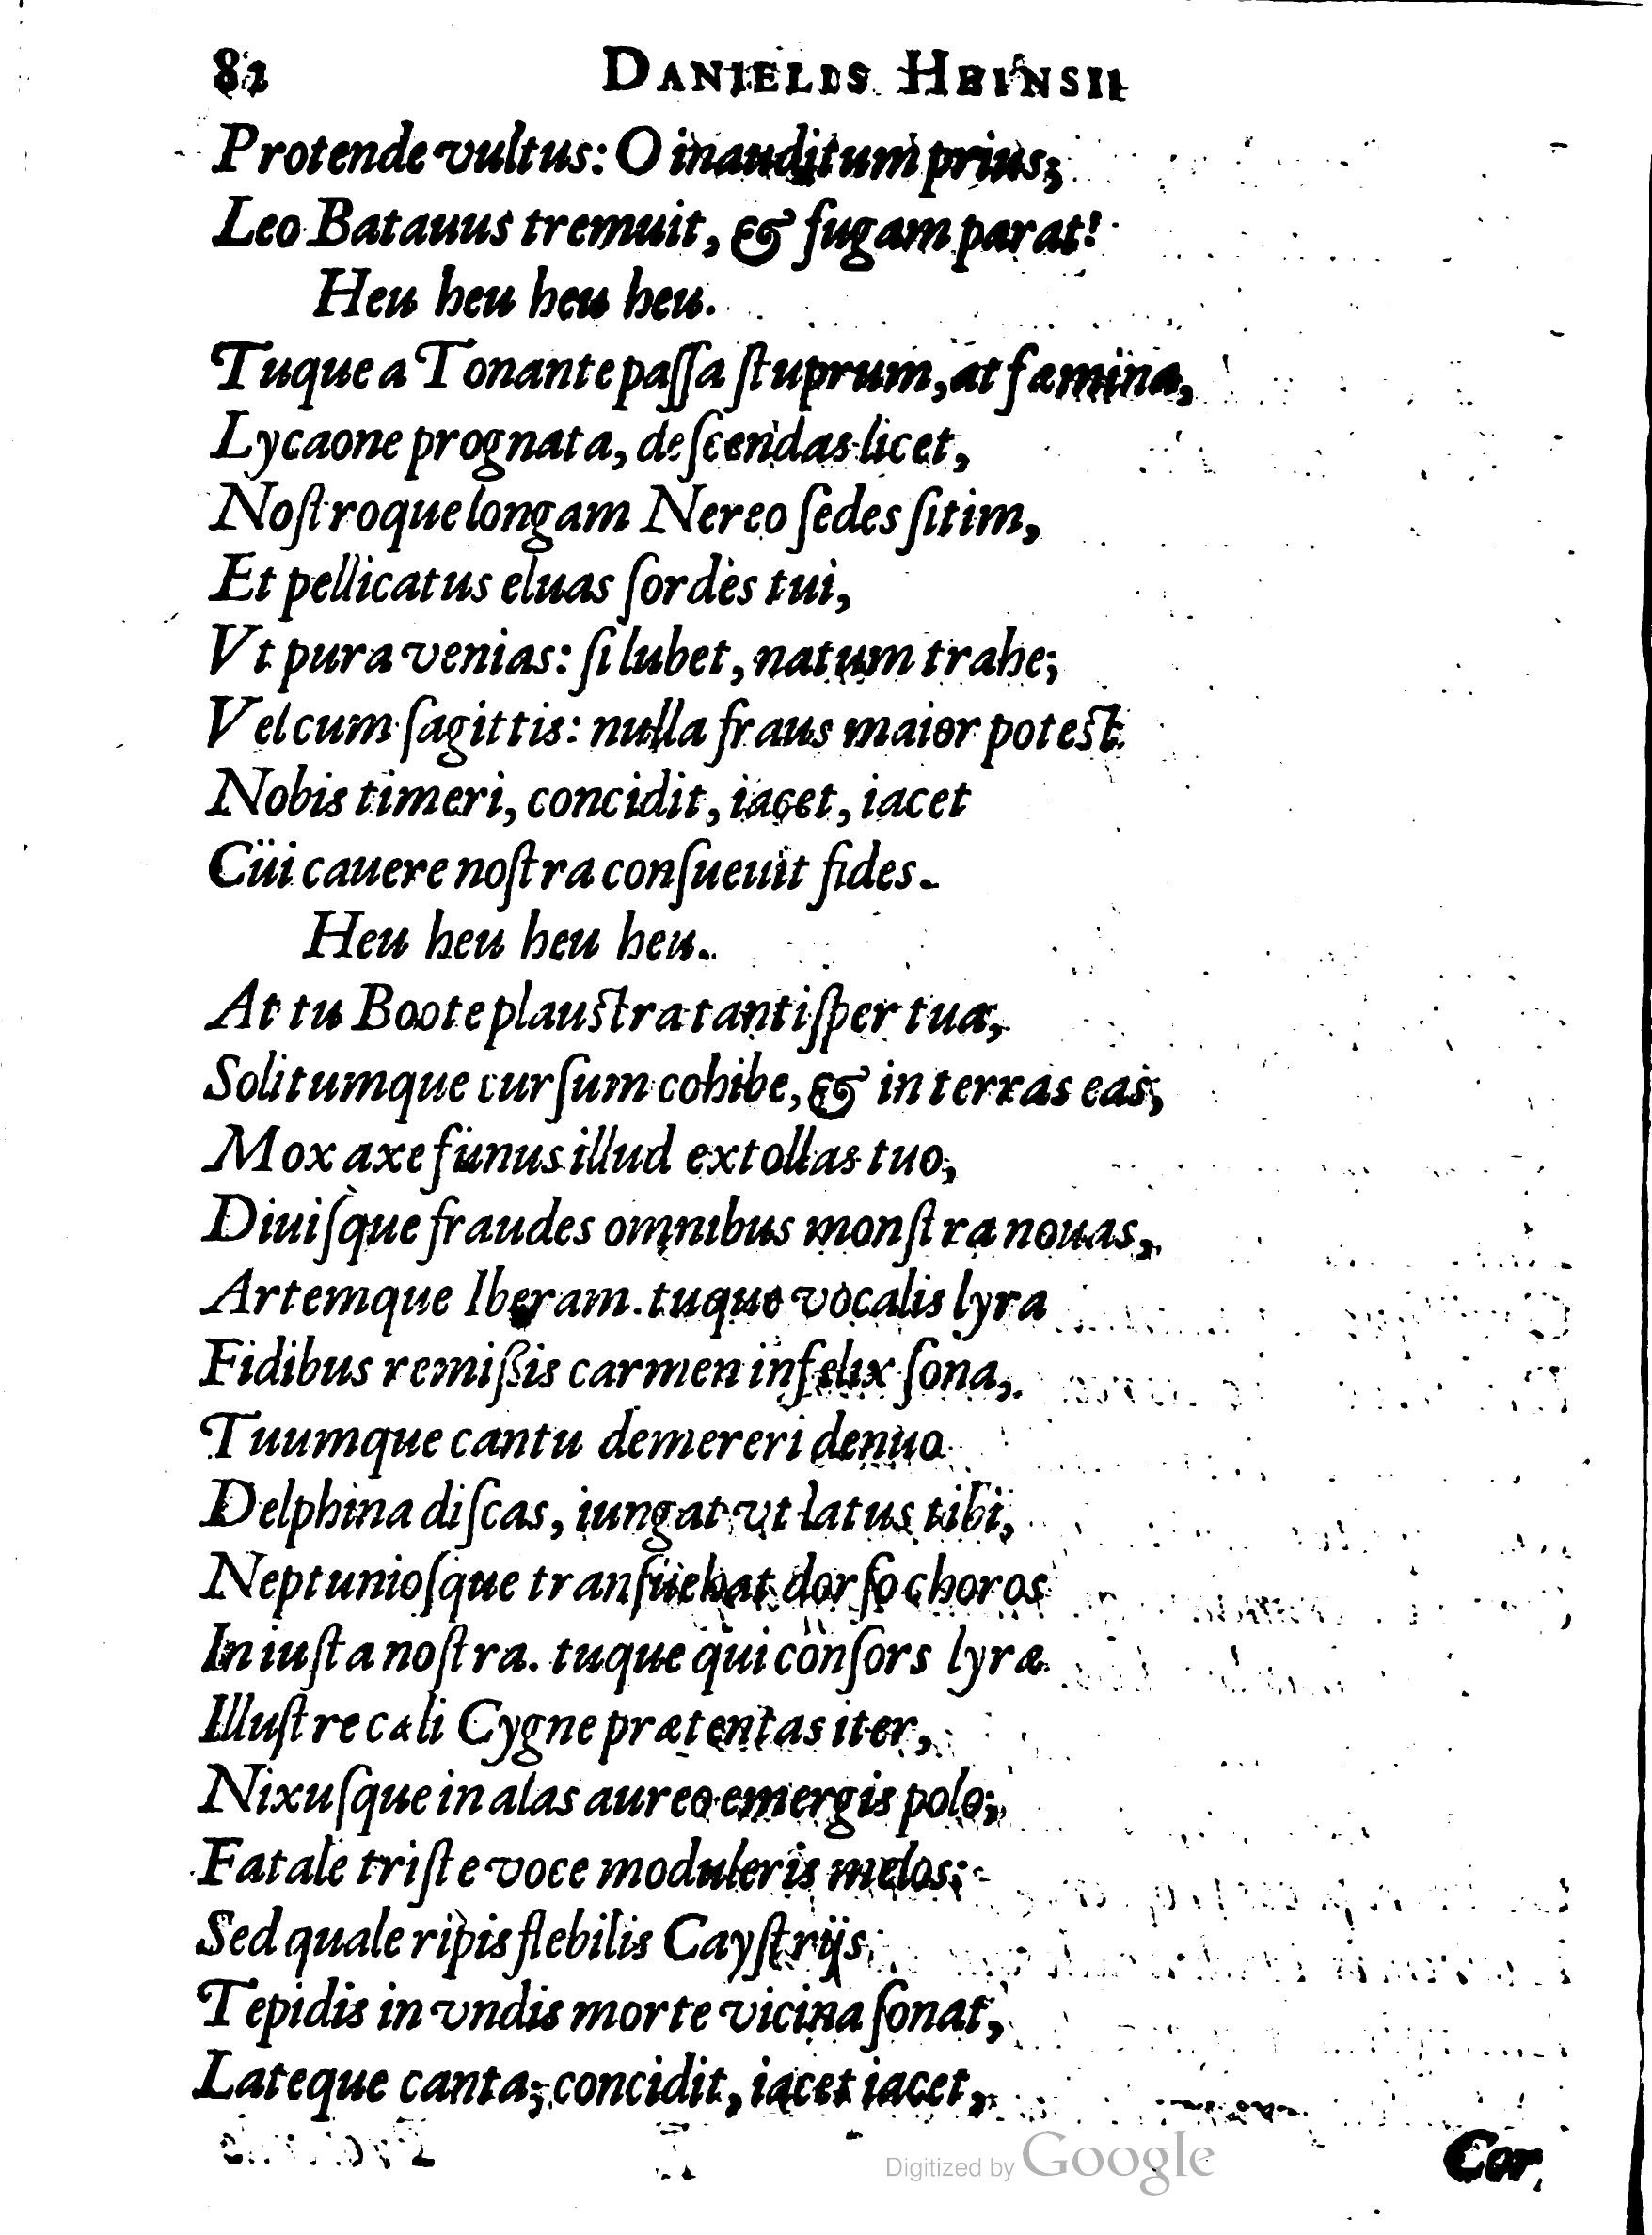 82 DANIELIS HEINSII
Protende vultus: O inauditum prius,
Leo Batauus tremuit, & fugam parat!
Heu heu heu heu.
Tuque a Tonante paſſa ſtuprum, at fæmina,
Lycaone prognata, deſcendas licet,
Noſtroque longam Nereo ſedes ſitim,
Et pellicatus eluas ſordes tui,
Vt pura venias: ſi lubet, natum trahe;
Vel cum ſagittis: nulla fraus maior poteſt
Nobis timeri, concidit, iacet, iacet
Cüi cauere noſtra conſueuit fides.
Heu heu heu heu.
At tu Boote plauſtra tantiſper tua,
Solitumque curſum cohibe, & in terras eas,
Mox axe funus illud extollas tuo,
Diuiſque fraudes omnibus monſtra nouas,
Artemque Iberam. tuque vocalis lyra
Fidibus remiſsis carmen infelix ſona,
Tuumque cantu demereri denuo
Delphina diſcas, iungat vt latus tibi,
Neptunioſque tranſuehat dorſo choros
In iuſta noſtra. tuque qui conſors lyræ
Illuſtre cæli Cygne prætentas iter,
Nixuſque in alas aureo emergis polo;
Fatale triſte voce moduleris melos;
Sed quale ripis flebilis Cayſtrijs
Tepidis in vndis morte vicina ſonat,
Lateque canta; concidit, iacet iacet,
Cor,
Digitized by Google